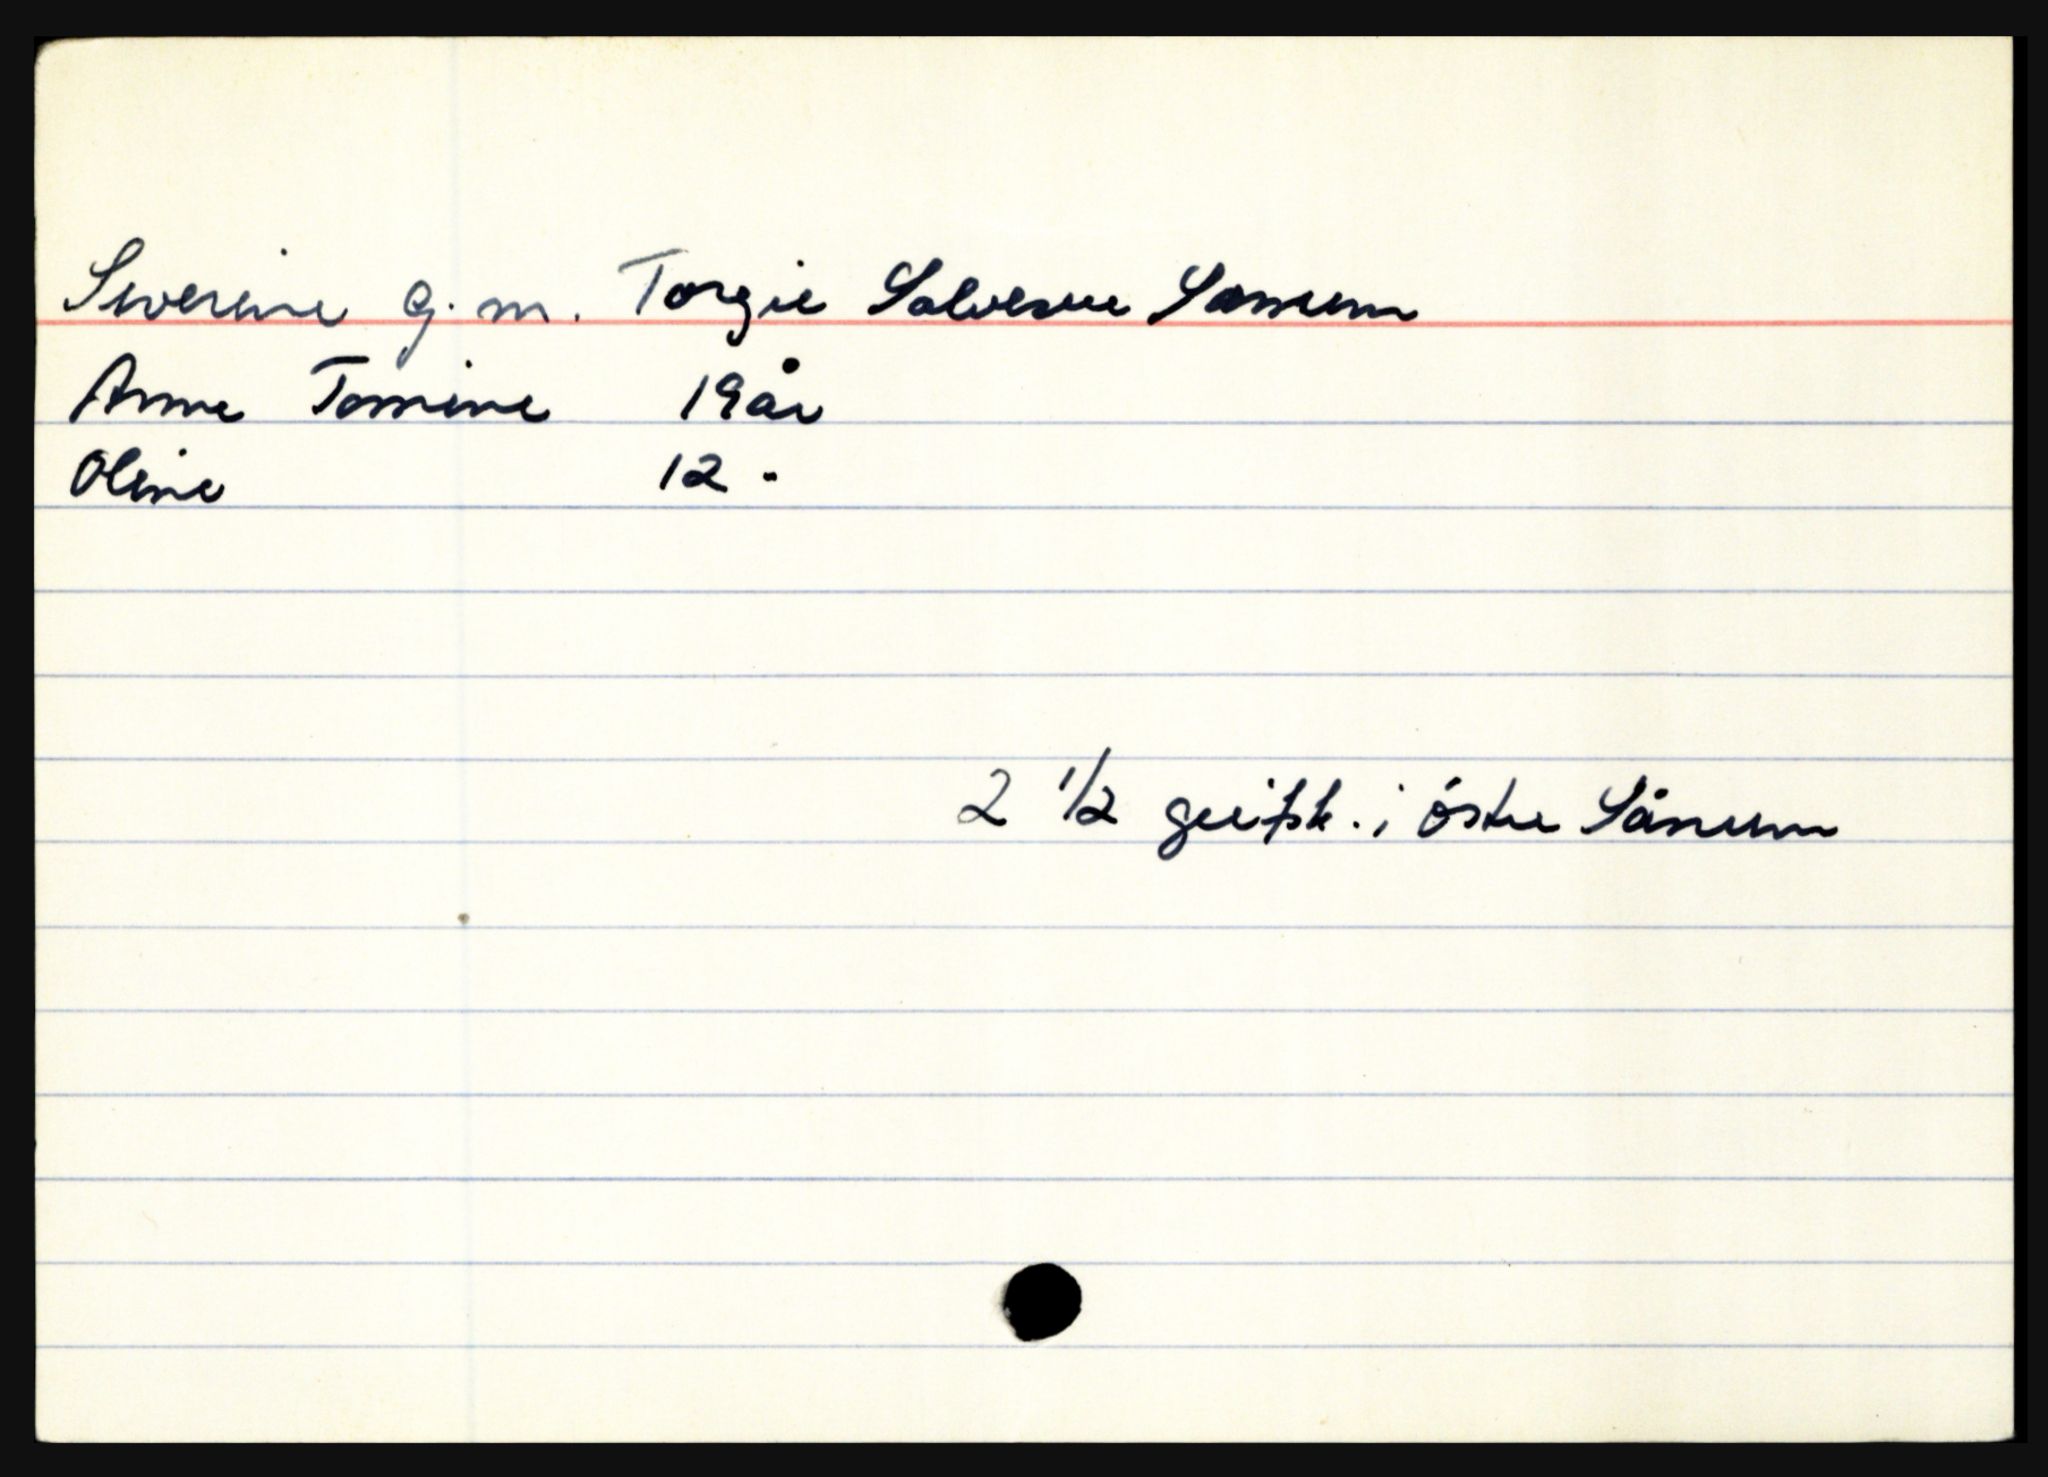 Severine g. m. Torgie Salvesen Sanum
Anne Tomine 19 år
Oline 12 "
2 1/2 geitsk. i østre Sånum